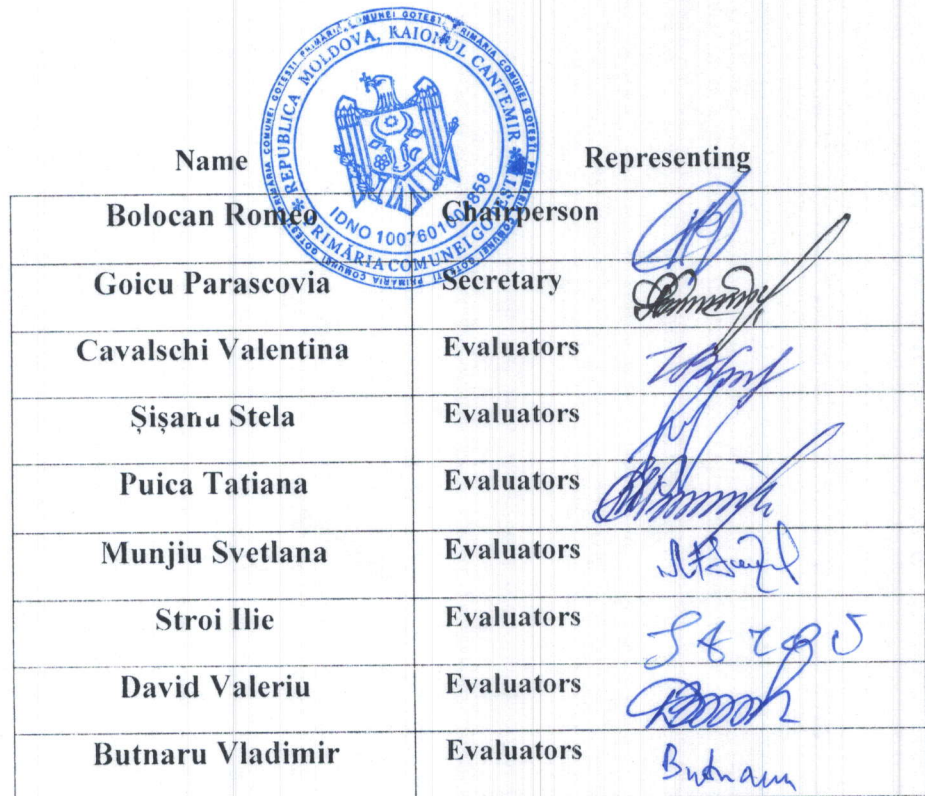 PRIMĂRIA COMUNEI GOTEȘTI
REPUBLICA MOLDOVA, RAIONUL CANTEMIR
PRIMĂRIA COMUNEI GOTEȘTI
Name Representing
Bolocan Romeo Chairperson
Goicu Parascovia Secretary
Cavalschi Valentina Evaluators
Șișanu Stela Evaluators
Puica Tatiana Evaluators
Munjiu Svetlana Evaluators
Stroi Ilie Evaluators
David Valeriu Evaluators
Butnaru Vladimir Evaluators Butnaru